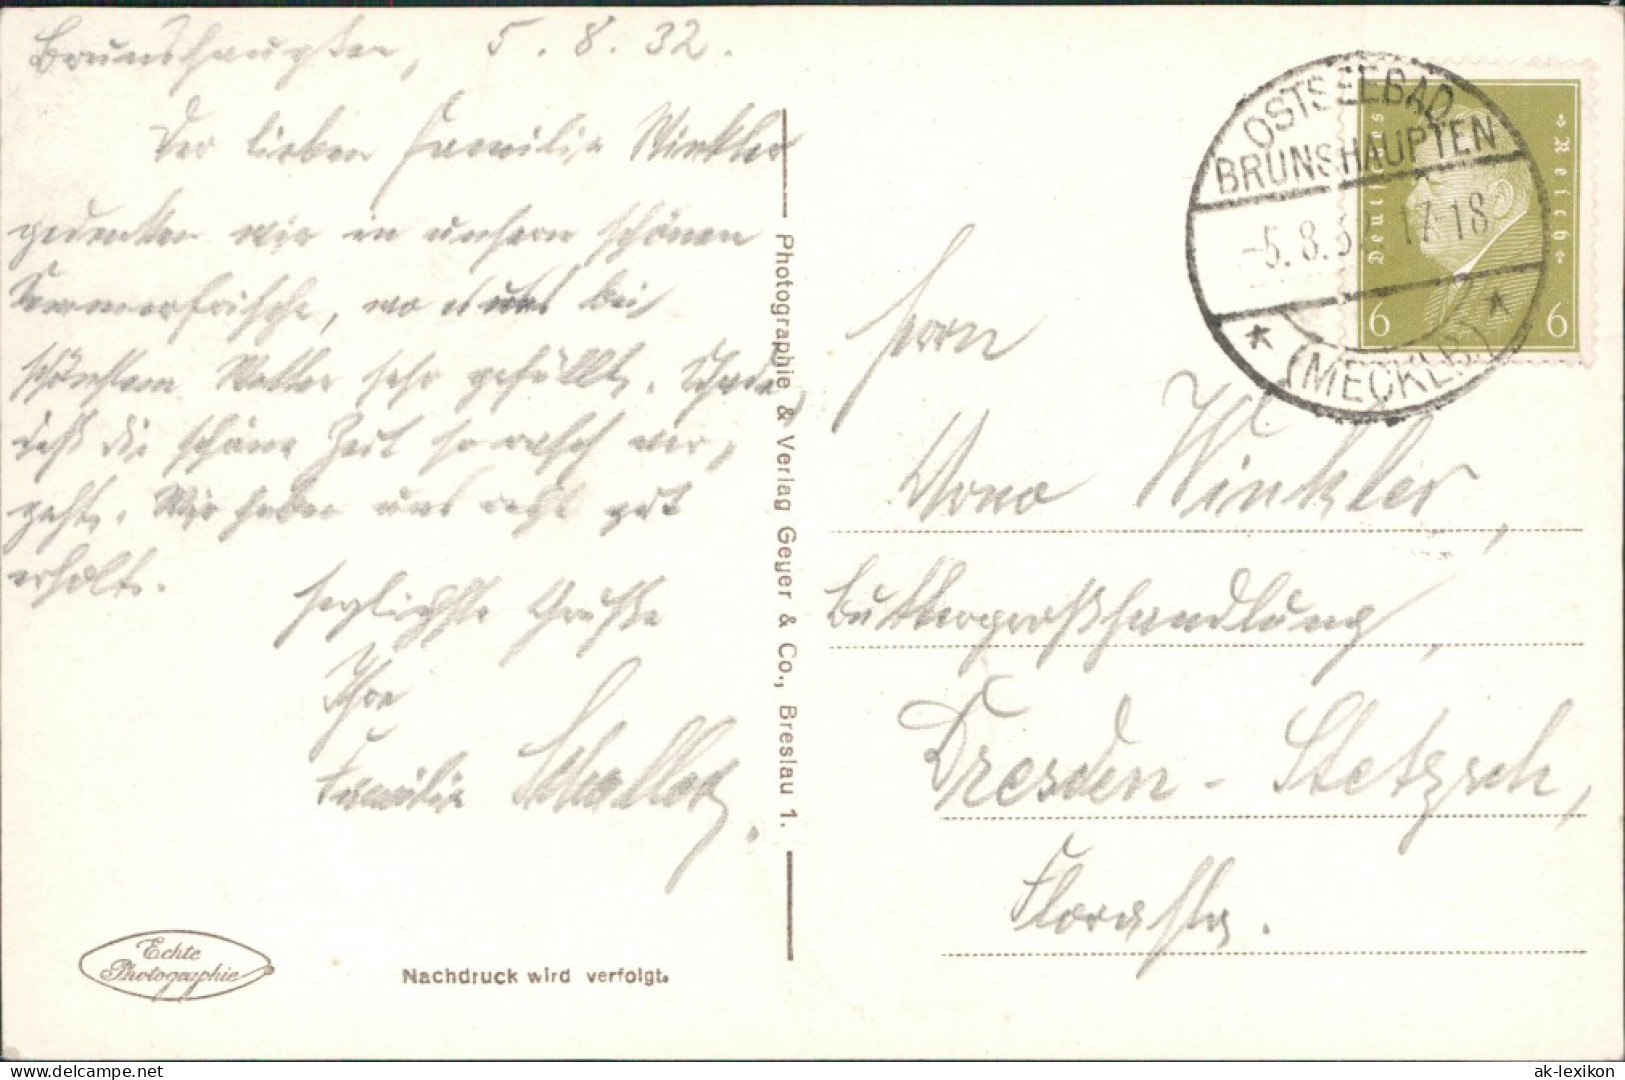 Brunshaupten, 5.8.32.
Der lieben Familie Winkler
gedenken wir in unserer schönen
Sommerfrische, wo es uns bei
schönstem Wetter sehr gefällt. Schade,
daß die schöne Zeit so rasch ver-
geht. Wir haben uns recht gut
erholt.
Herzlichste Grüße
Ihre
Familie
Echte
Photographie
Nachdruck wird verfolgt.
Photographie & Verlag Geyer & Co., Breslau 1.
OSTSEEBAD
BRUNSHAUPTEN
-5.8.32 17-18
* (MECKLB.) *
Deutsches Reich
6 6
Herrn
Winkler,
Buttergroßhandlung,
Dresden - Stetzsch,
Florastr.
ak-lexikon